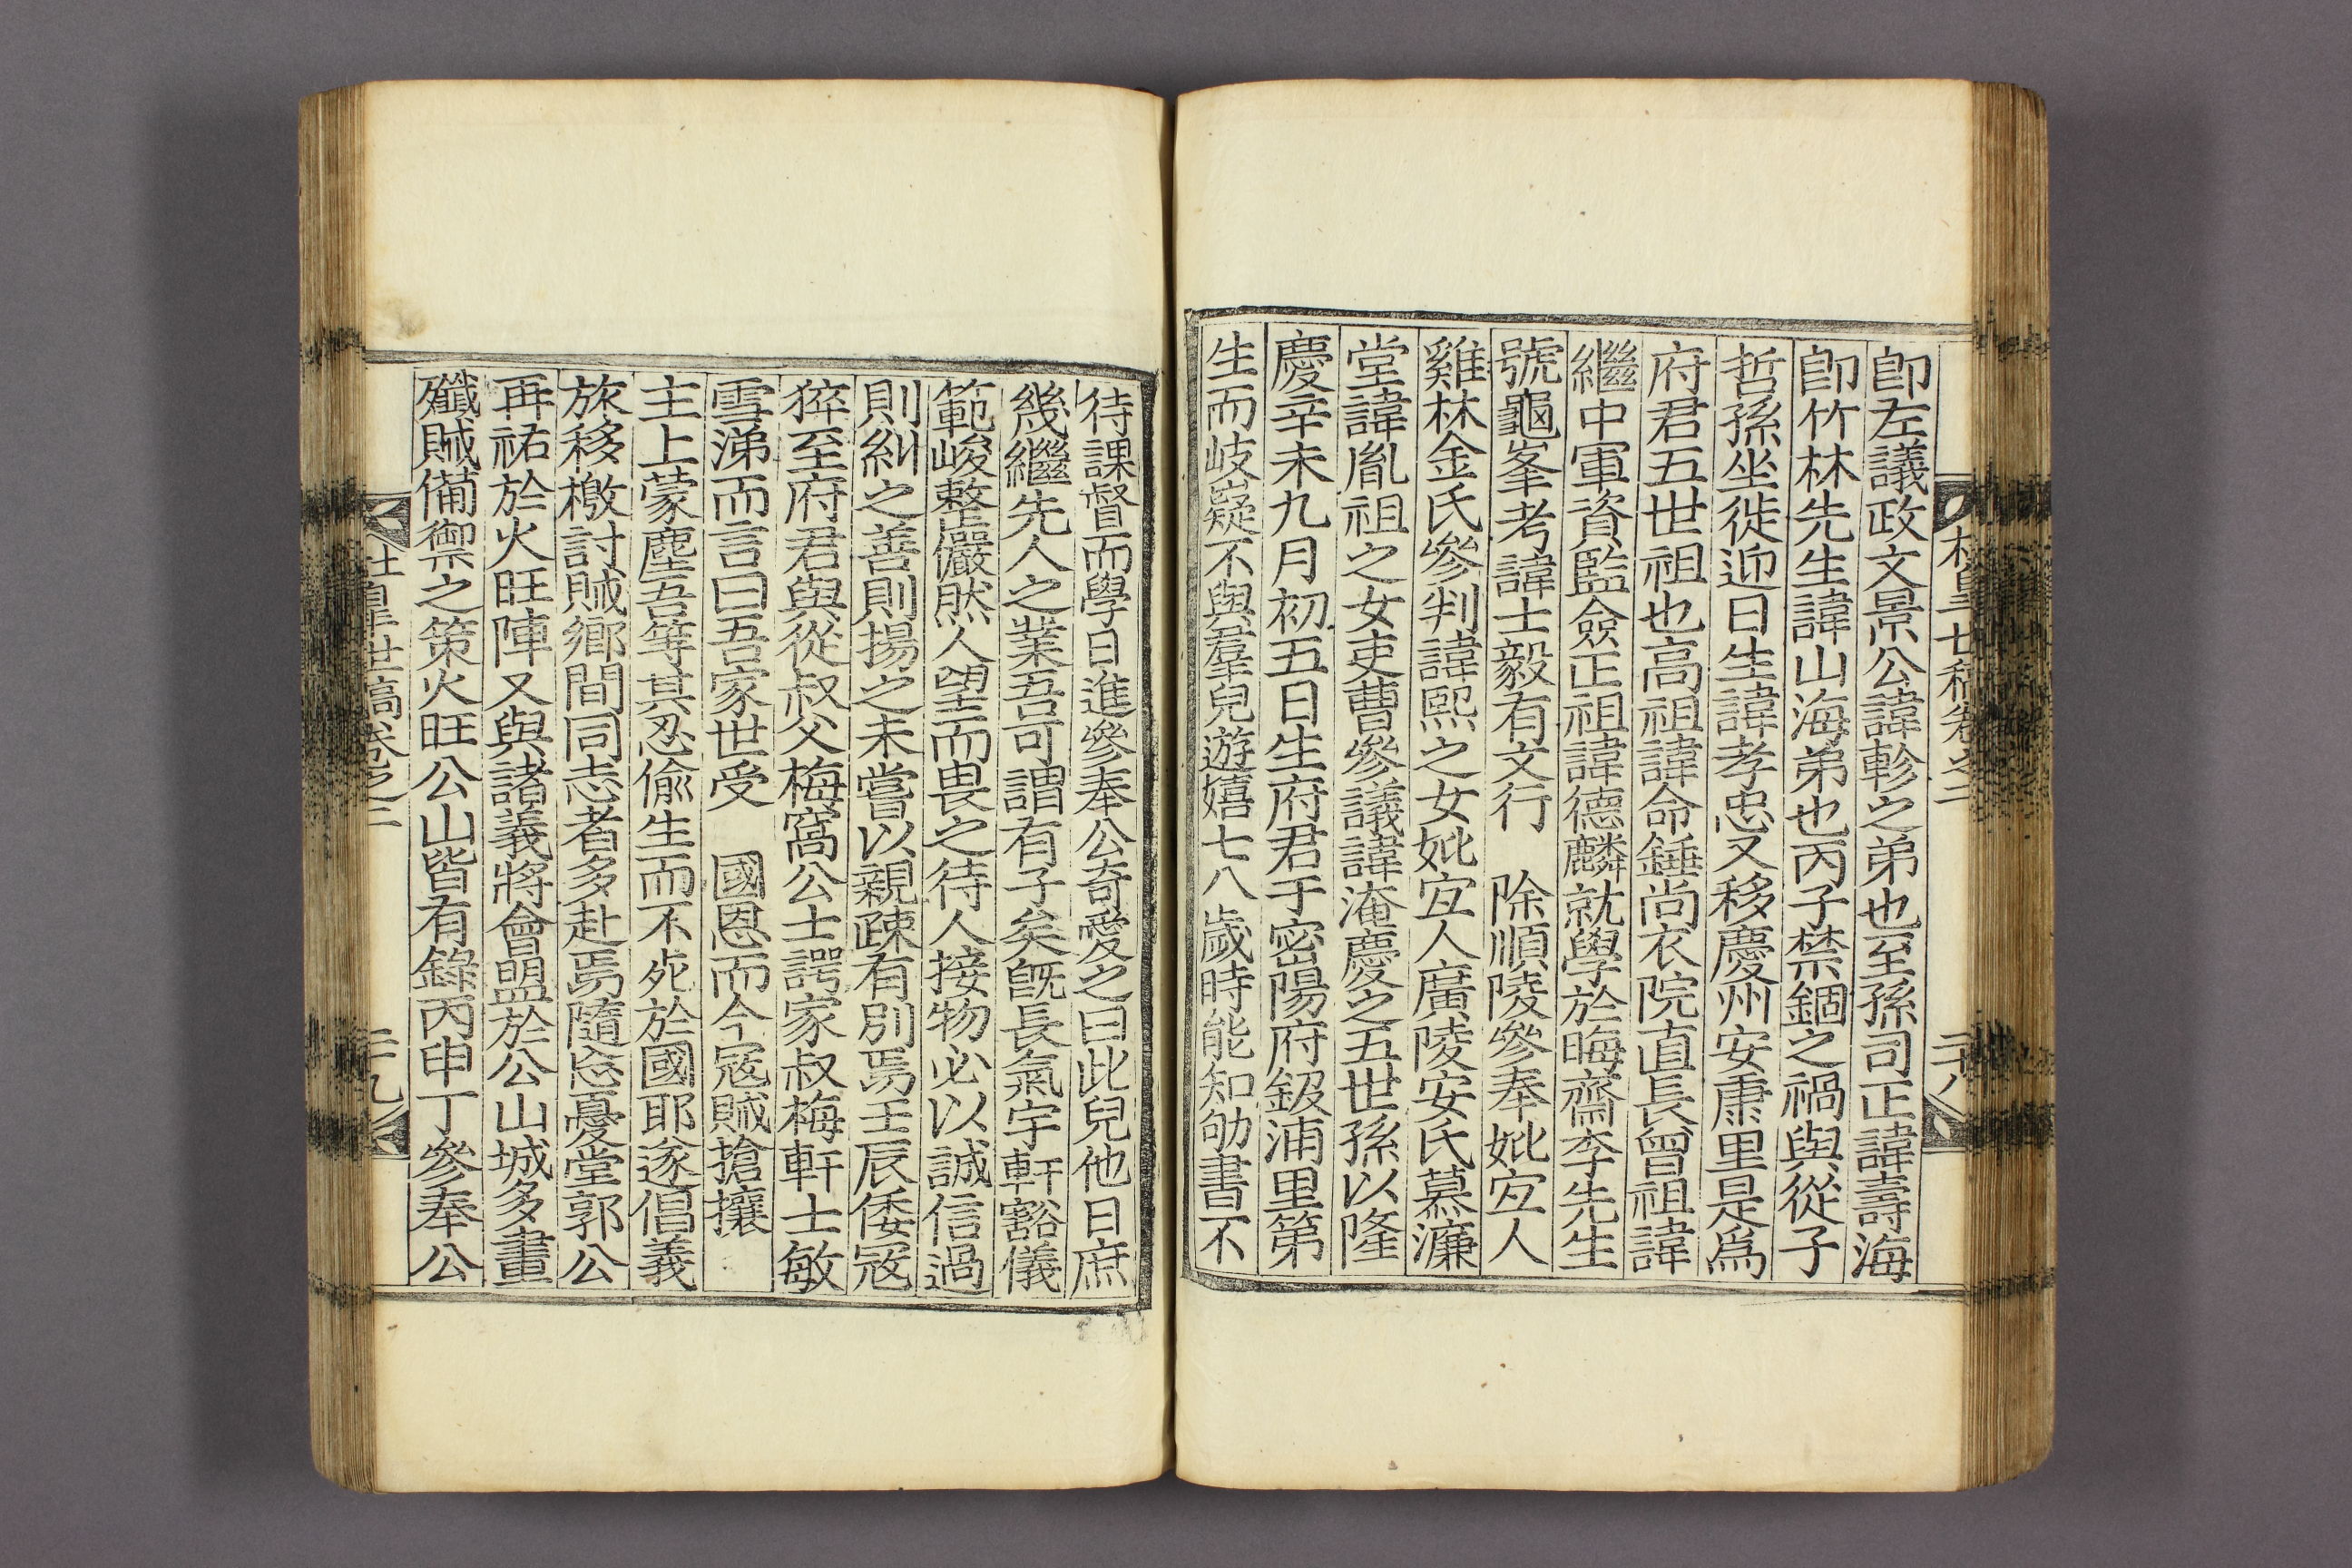 卽左議政文景公諱軫之弟也至孫司正諱壽海
卽竹林先生諱山海弟也丙子禁錮之禍與從子
哲孫坐徙迎日生諱孝忠又移慶州安康里是爲
府君五世祖也高祖諱命錘尚衣院直長曾祖諱
繼中軍資監僉正祖諱德麟就學於晦齋李先生
號龜峯考諱士毅有文行 除順陵參奉妣宜人
雞林金氏參判諱熙之女妣宜人廣陵安氏慕濂
堂諱胤祖之女吏曹參議諱淹慶之五世孫以隆
慶辛未九月初五日生府君于密陽府鈒浦里第
生而岐嶷不與羣兒遊嬉七八歲時能知劬書不
世稿卷之二
二十八
待課督而學日進參奉公奇愛之曰此兒他日庶
幾繼先人之業吾可謂有子矣旣長氣宇軒豁儀
範峻整儼然人望而畏之待人接物必以誠信過
則糾之善則揚之未嘗以親疎有別焉壬辰倭寇
猝至府君與從叔父梅窩公士諤家叔梅軒士敏
雪涕而言曰吾家世受 國恩而今寇賊搶攘
主上蒙塵吾等其忍偸生而不死於國耶遂倡義
旅移檄討賊鄉間同志者多赴焉隨忘憂堂郭公
再祐於火旺陣又與諸義將會盟於公山城多畫
殲賊備禦之策火旺公山皆有錄丙申丁參奉公
世稿卷之二
二十九